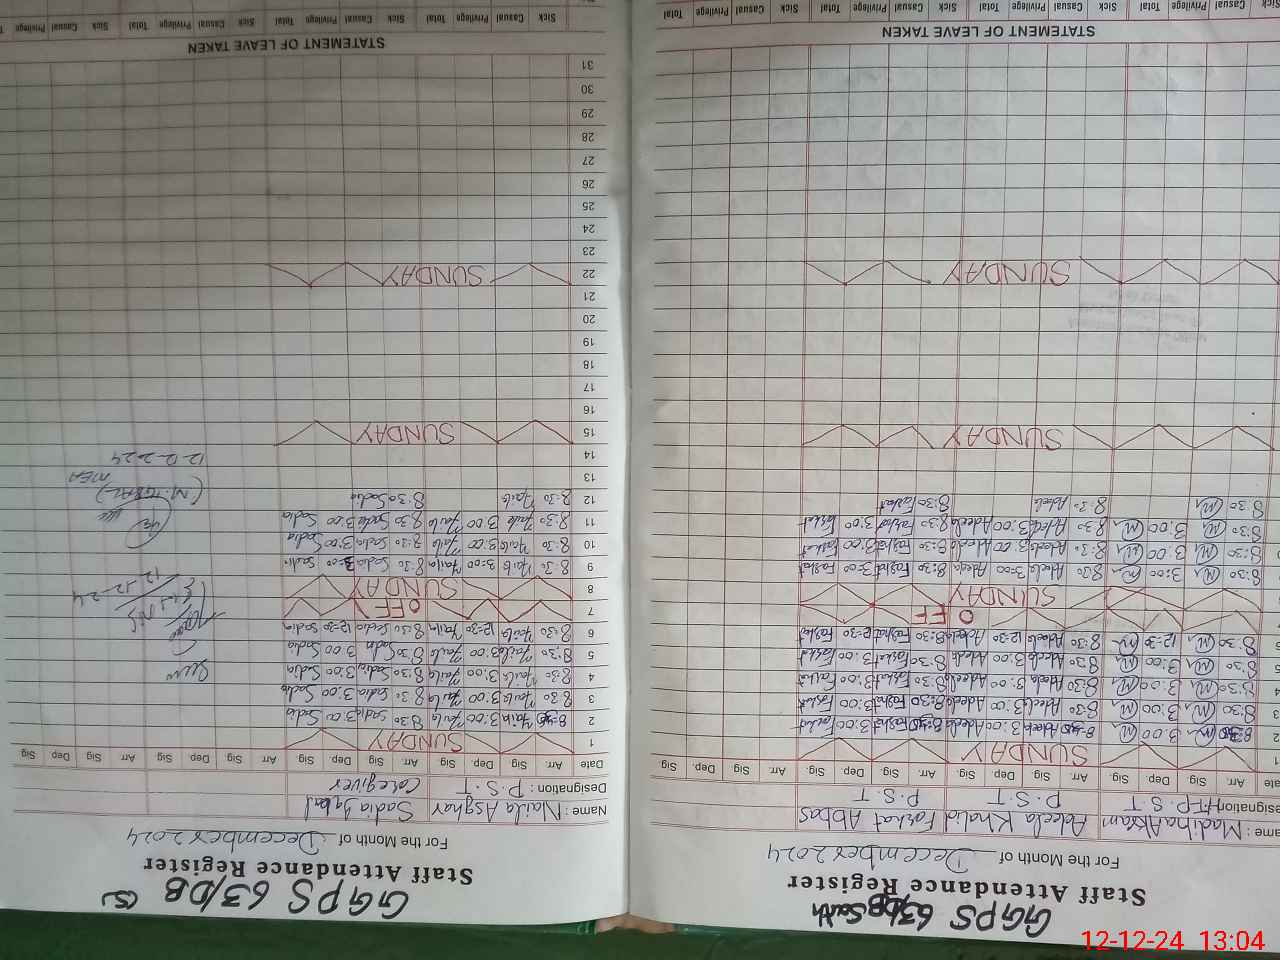 GGPS 63/DB South
Staff Attendance Register
For the Month of December 2024
Name: Madiha Akram Adeela Khalid Farhat Abbas
Designation: P.S.T P.S.T P.S.T
Date Arr. Sig. Dep. Sig. Arr. Sig. Dep. Sig. Arr. Sig. Dep. Sig. Arr. Sig. Dep. Sig.
1 SUNDAY
2 8:30 3:00 8:30 Adeela 3:00 Adeela 8:30 Farhat 3:00 Farhat
3 8:30 3:00 8:30 Adeela 3:00 Adeela 8:30 Farhat 3:00 Farhat
4 8:30 3:00 8:30 Adeela 3:00 Adeela 8:30 Farhat 3:00 Farhat
5 8:30 3:00 8:30 Adeela 3:00 Adeela 8:30 Farhat 3:00 Farhat
6 8:30 12:30 8:30 Adeela 12:30 Adeela 8:30 Farhat 12:30 Farhat
OFF
SUNDAY
8:30 3:00 8:30 Adeela 3:00 Adeela 8:30 Farhat 3:00 Farhat
8:30 3:00 8:30 Adeela 3:00 Adeela 8:30 Farhat 3:00 Farhat
8:30 3:00 8:30 Adeela 3:00 Adeela 8:30 Farhat 3:00 Farhat
8:30 8:30 Adeela 8:30 Farhat
SUNDAY
SUNDAY
STATEMENT OF LEAVE TAKEN
Sick Casual Privilege Total Sick Casual Privilege Total Sick Casual Privilege Total Sick Casual Privilege Total
GGPS 63/DB (S)
Staff Attendance Register
For the Month of December 2024
Name: Naila Asghar Sadia Iqbal
Designation: P.S.T Caregiver
Date Arr. Sig. Dep Sig. Arr. Sig. Dep Sig. Arr. Sig. Dep Sig. Arr. Sig. Dep Sig.
1 SUNDAY
2 8:30 Naila 3:00 Naila 8:30 Sadia 3:00 Sadia
3 8:30 Naila 3:00 Naila 8:30 Sadia 3:00 Sadia
4 8:30 Naila 3:00 Naila 8:30 Sadia 3:00 Sadia
5 8:30 Naila 3:00 Naila 8:30 Sadia 3:00 Sadia
6 8:30 Naila 12:30 Naila 8:30 Sadia 12:30 Sadia
7 OFF
8 SUNDAY
12-12-24
9 8:30 Naila 3:00 Naila 8:30 Sadia 3:00 Sadia
10 8:30 Naila 3:00 Naila 8:30 Sadia 3:00 Sadia
11 8:30 Naila 3:00 Naila 8:30 Sadia 3:00 Sadia
12 8:30 Naila 8:30 Sadia
(M. IQBAL)
13 MEA
14 12-12-2024
15 SUNDAY
16
17
18
19
20
21
22 SUNDAY
23
24
25
26
27
28
29
30
31
STATEMENT OF LEAVE TAKEN
Sick Casual Privilege Total Sick Casual Privilege Total Sick Casual Privilege Total Sick Casual Privilege
12-12-24 13:04